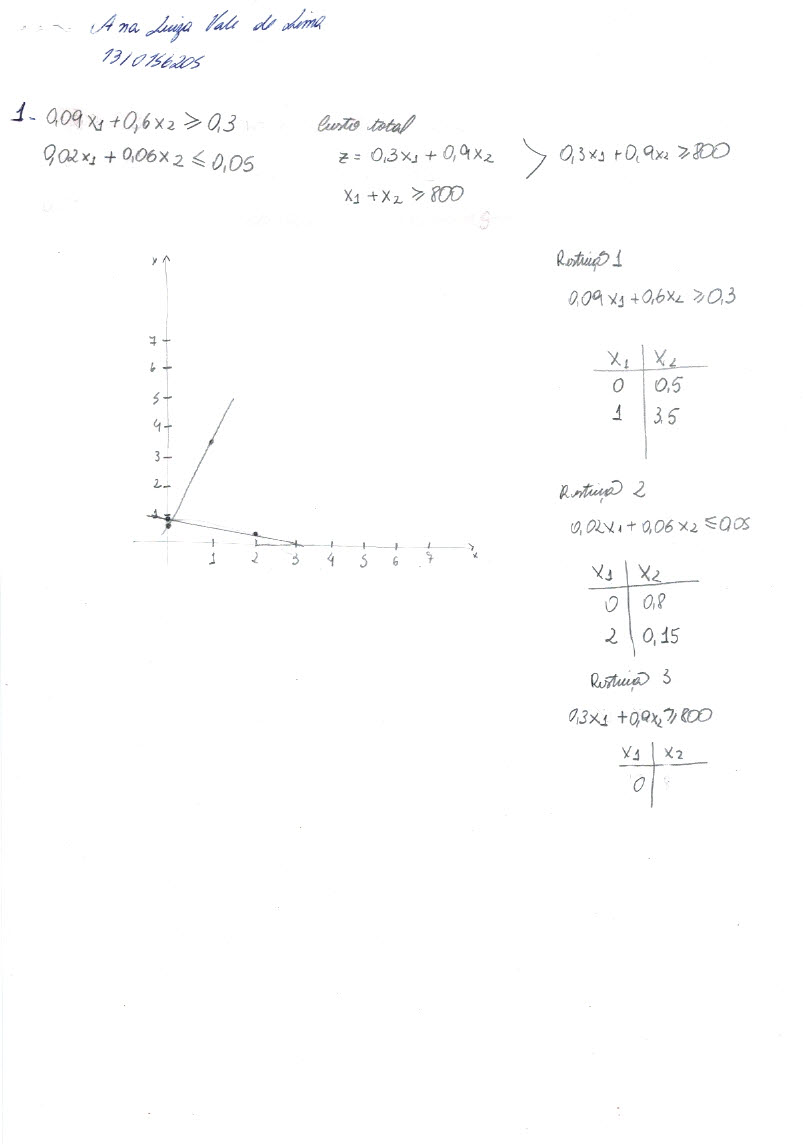 Ana Luiza Vale de Lima
13/0156205
1- 0,09x1 + 0,6x2 ≥ 0,3
0,02x1 + 0,06x2 ≤ 0,05
Custo total
z = 0,3x1 + 0,9x2
x1 + x2 ≥ 800
0,3x1 + 0,9x2 ≥ 800
y
7
6
5
4
3
2
1
1 2 3 4 5 6 7 x
Restrição 1
0,09x1 + 0,6x2 ≥ 0,3
x1 x2
0 0,5
1 3,5
Restrição 2
0,02x1 + 0,06x2 ≤ 0,05
x1 x2
0 0,8
2 0,15
Restrição 3
0,3x1 + 0,9x2 ≥ 800
x1 x2
0